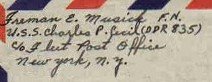 Freman E. Musick F.N.
U.S.S. Charles P. Cecil (DDR 835)
c/o Fleet Post Office
New york, N.y.